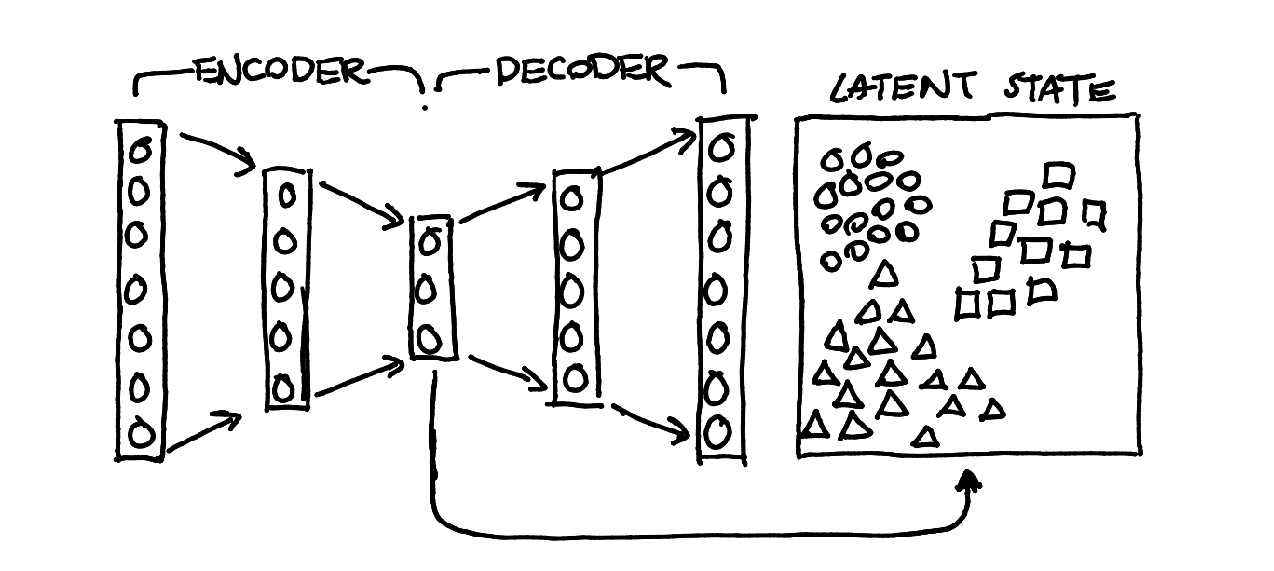 ENCODER
DECODER
LATENT STATE